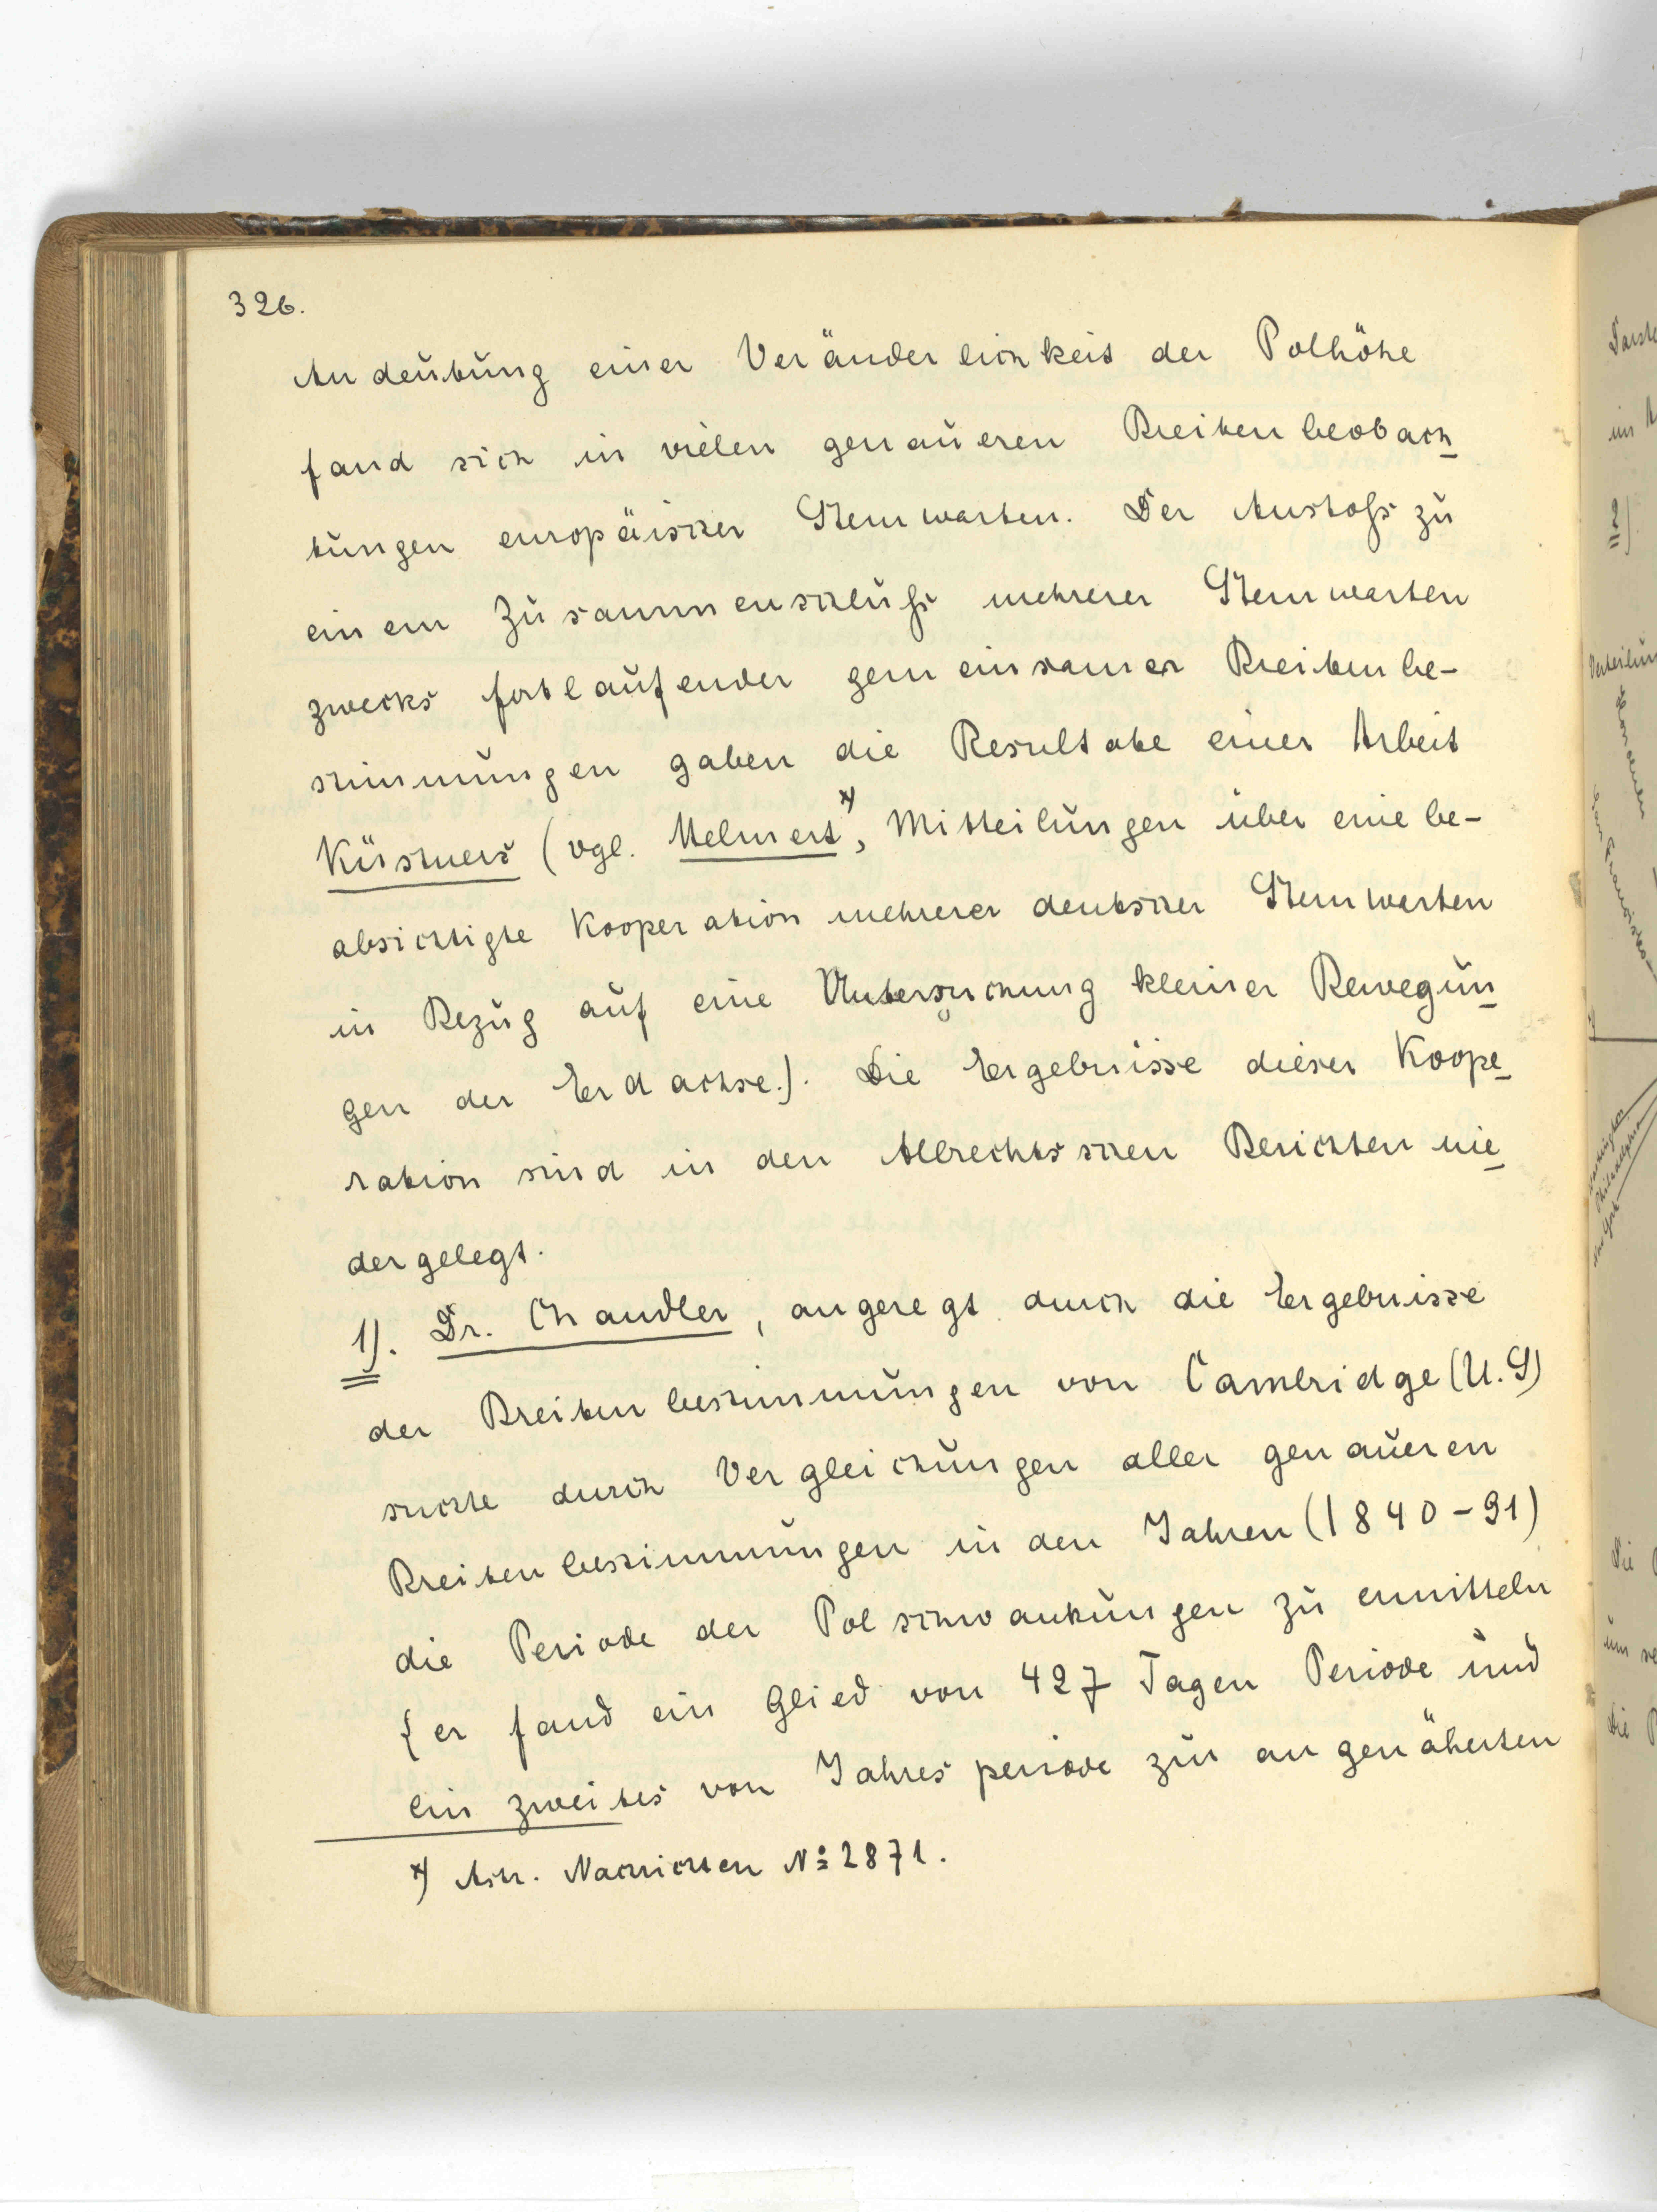 326.
Andeutung einer Veränderlichkeit der Polhöhe
fand sich in vielen genaueren Breitenbeobach-
tungen europäischer Sternwarten. Der Anstoß zu
einem Zusammenschluß mehrerer Sternwarten
zwecks fortlaufender gemeinsamer Breitenbe-
stimmungen gaben die Resultate einer Arbeit
Küstners (vgl. Helmert *), Mitteilungen über eine be-
absichtigte Kooperation mehrerer deutscher Sternwarten
in Bezug auf eine Untersuchung kleiner Bewegun-
gen der Erdachse.). Die Ergebnisse dieser Koope-
ration sind in den Albrechtsschen Berichten nie-
dergelegt.
1). Dr. Chandler, angeregt durch die Ergebnisse
der Breitenbestimmungen von Cambridge (U.S)
suchte durch Vergleichungen aller genaueren
Breitenbestimmungen in den Jahren (1840-91)
die Periode der Polschwankungen zu ermitteln
{er fand ein Glied von 427 Tagen Periode und
ein zweites von Jahresperiode zur angenäherten
*) Astr. Nachrichten No 2871.